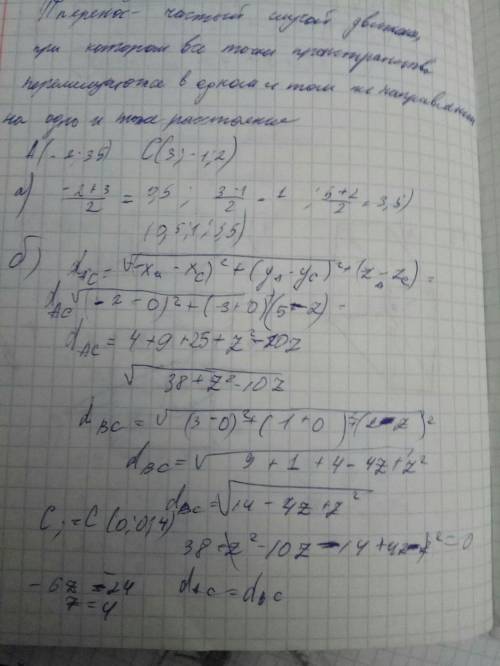 Пперенос - частный случай движения,
при котором все точки пространства
перемещаются в одном и том же направлении
на одно и тоже расстояние
A(-2;3;5) C(3;-1;2)
а) (-2+3)/2 = 0,5 ; (3-1)/2 = 1 ; (5+2)/2 = 3,5)
(0,5;1;3,5)
б) d_AC = √(-x_a - x_c)² + (y_A - y_C)² + (z_A - z_C) =
d_AC √(-2-0)² + (-3+0)²(5-z) -
d_AC = 4+9+25+z²-10z
√38+z²-10z
d_BC = √(3-0)²+(1+0)²+(2-z)²
d_BC = √9+1+4-4z+z²
d_BC = √14-4z+z²
C, = C(0;0;4)
38+z²-10z-14+4z-z²=0
-6z=-24 d_AC = d_BC
z=4